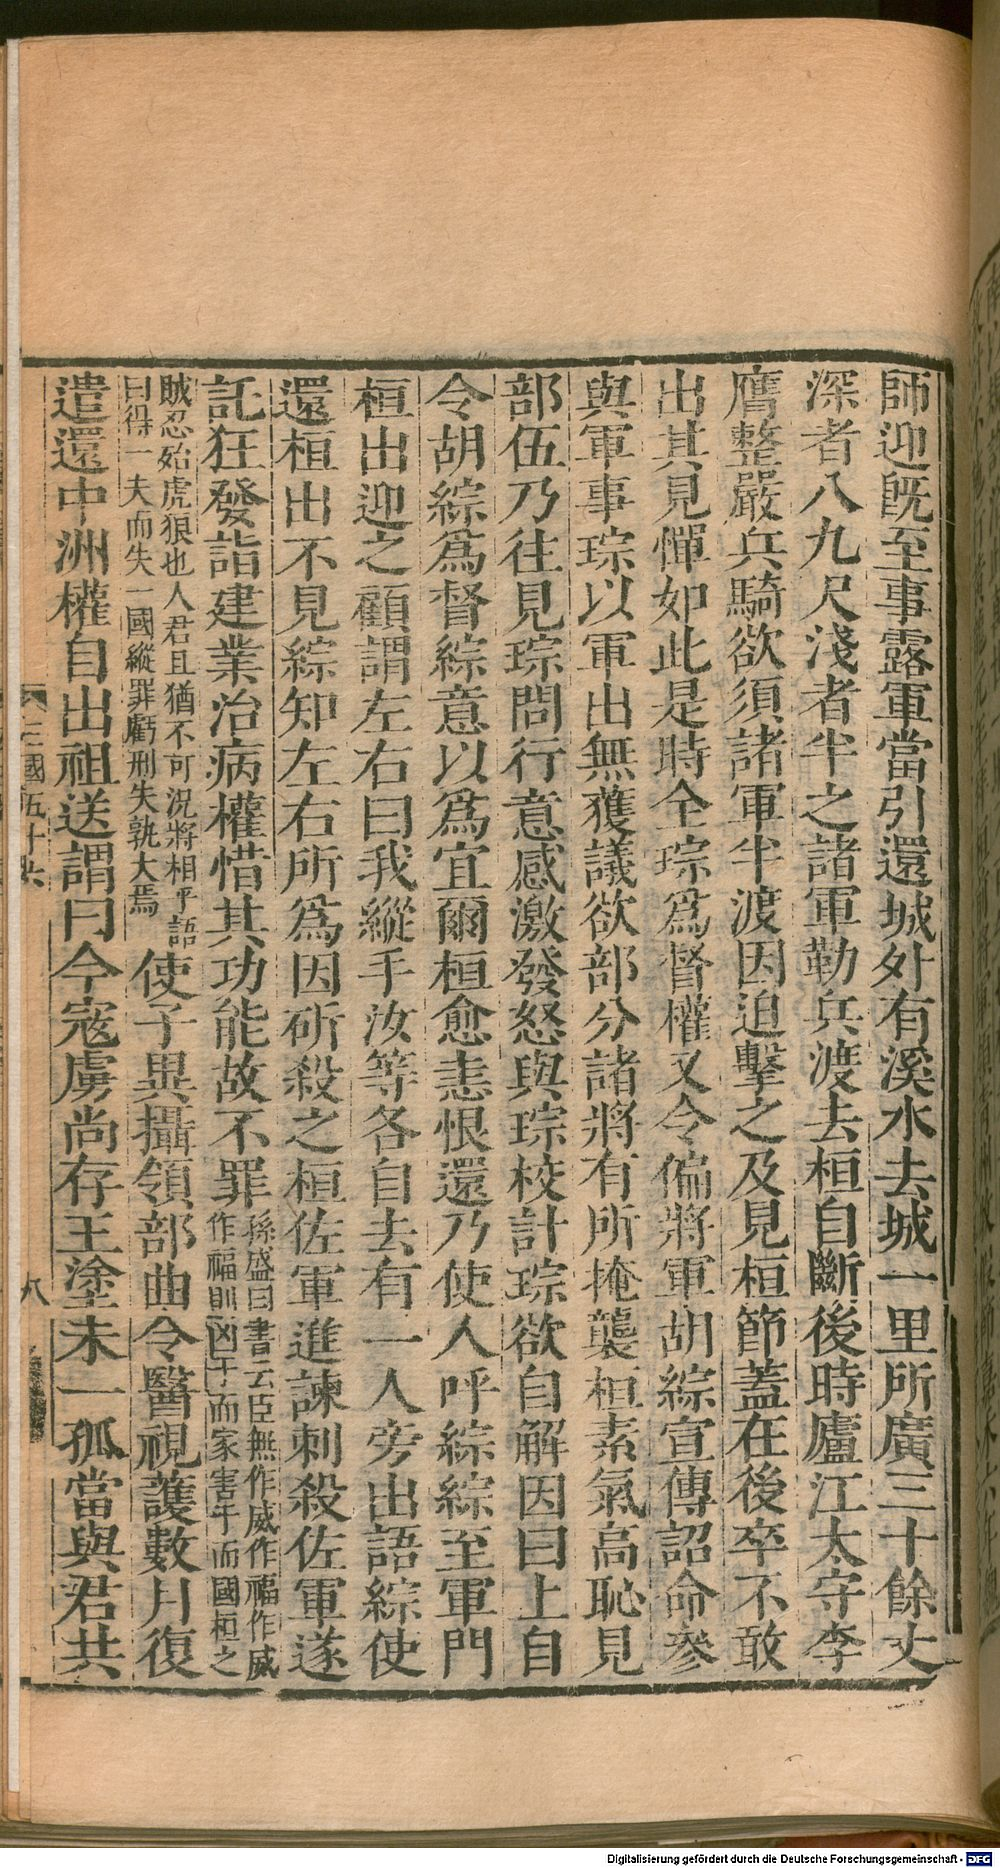 師迎既至事露軍當引還城外有溪水去城一里所廣三十餘丈
深者八九尺淺者半之諸軍勒兵渡去桓自斷後時廬江太守李
膺整嚴兵騎欲須諸軍半渡因迫擊之及見桓節蓋在後卒不敢
出其見憚如此是時全琮爲督權又令偏將軍胡綜宣傳詔命參
與軍事琮以軍出無獲議欲部分諸將有所掩襲桓素氣高恥見
部伍乃往見琮問行意感激發怒與琮校計琮欲自解因曰上自
令胡綜爲督綜意以爲宜爾桓愈恚恨還乃使人呼綜綜至軍門
桓出迎之顧謂左右曰我縱手汝等各自去有一人旁出語綜使
還桓出不見綜知左右所爲因斫殺之桓佐軍進諫刺殺佐軍遂
託狂發詣建業治病權惜其功能故不罪
孫盛曰書云臣無作威作福作威
作福則凶于而家害于而國桓之
賊忍殆虎狼也人君且猶不可況將相乎語
曰得一夫而失一國縱罪虧刑失孰大焉
使子異攝領部曲令醫視護數月復
遣還中洲權自出祖送謂曰今寇虜尚存王塗未一孤當與君共
三國五十六
八
Digitalisierung gefördert durch die Deutsche Forschungsgemeinschaft - DFG